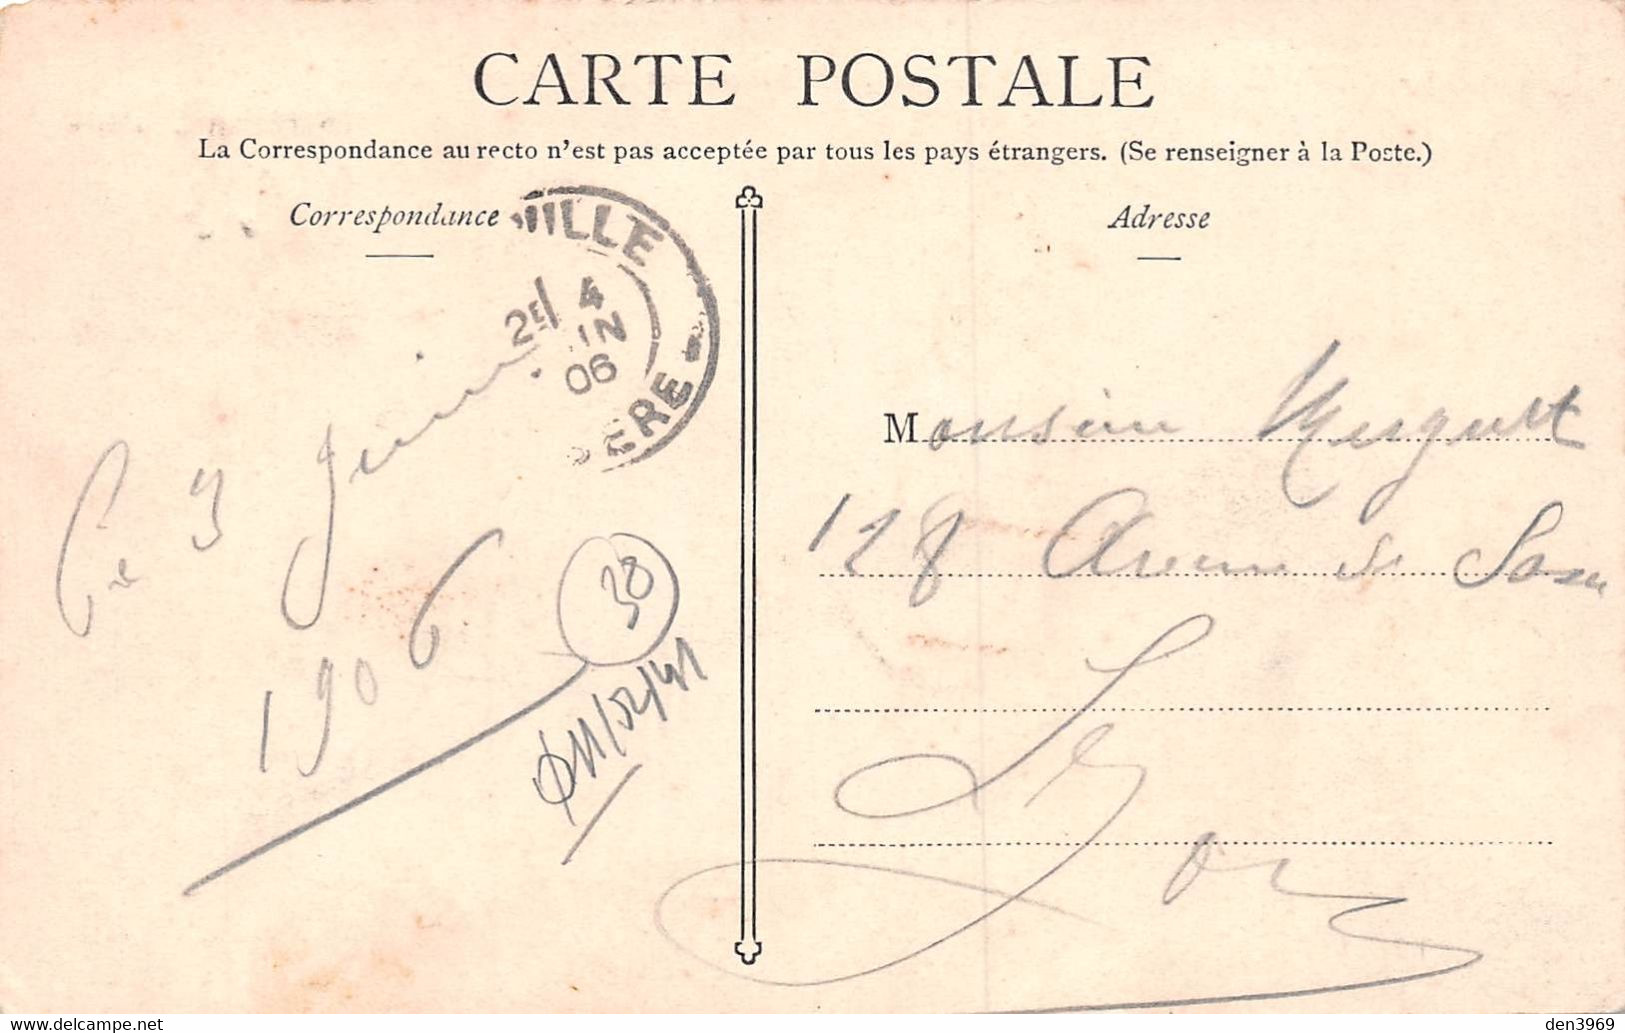 CARTE POSTALE
La Correspondance au recto n'est pas acceptée par tous les pays étrangers. (Se renseigner à la Poste.)
Correspondance
Adresse
VILLE
2E 4
IN
06
ERE
Ce 3 Juin
1906
38
Monsieur
128 Avenue de Saxe
Lyon
den3969